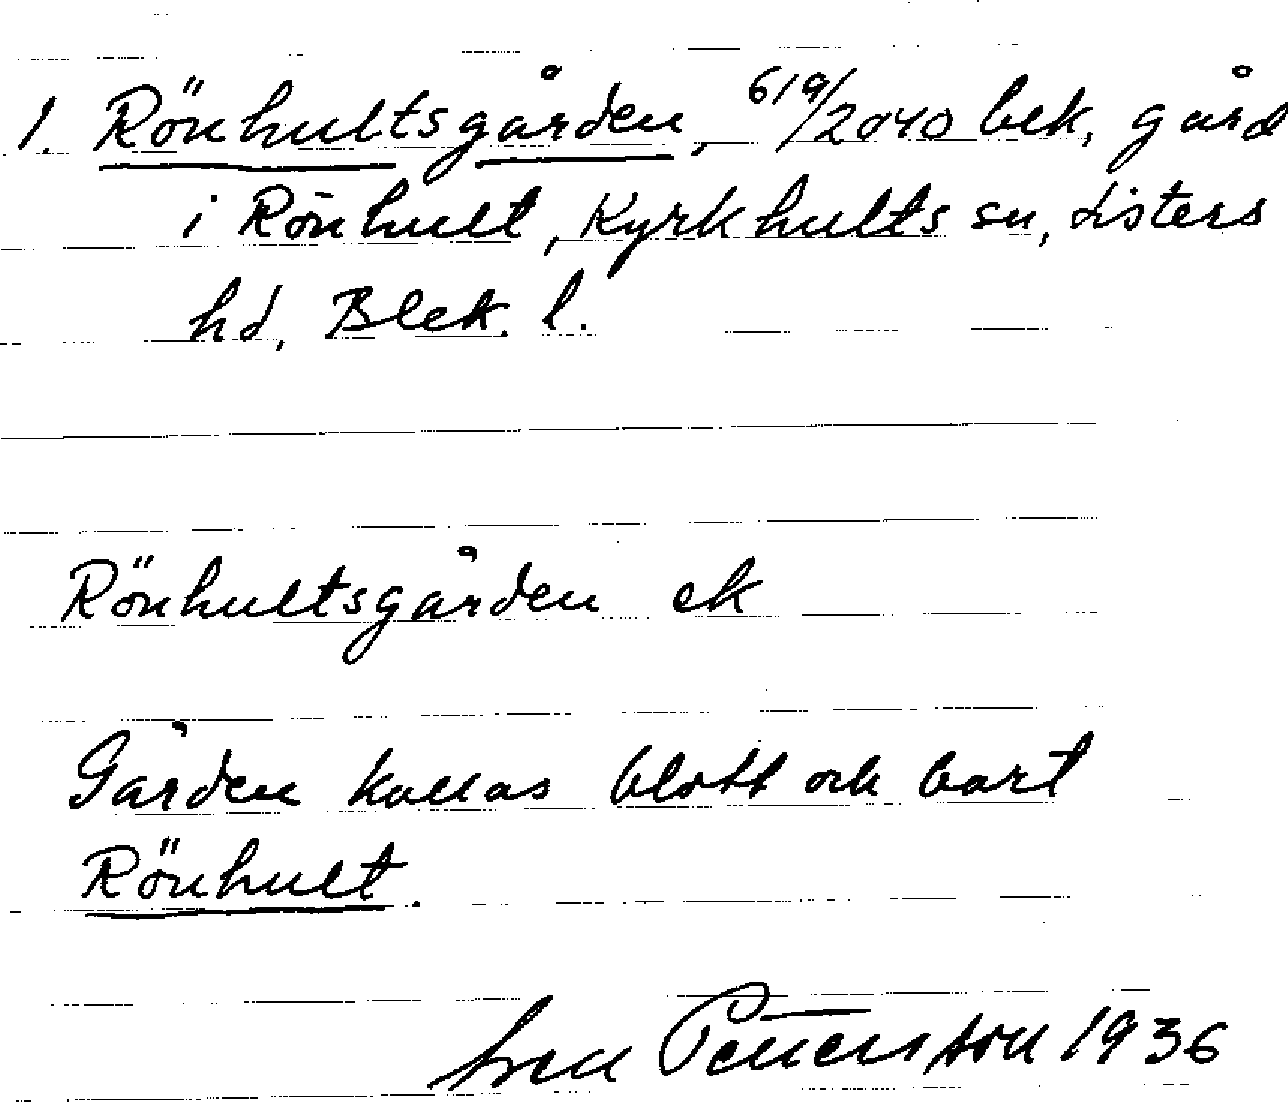 1. Rönhultsgården, 619/2040 bek, gård
i Rönhult, Kyrkhults sn, Listers
hd, Blek. l.
Rönhultsgården ek
Gården kallas blott och bart
Rönhult.
Petterson 1936